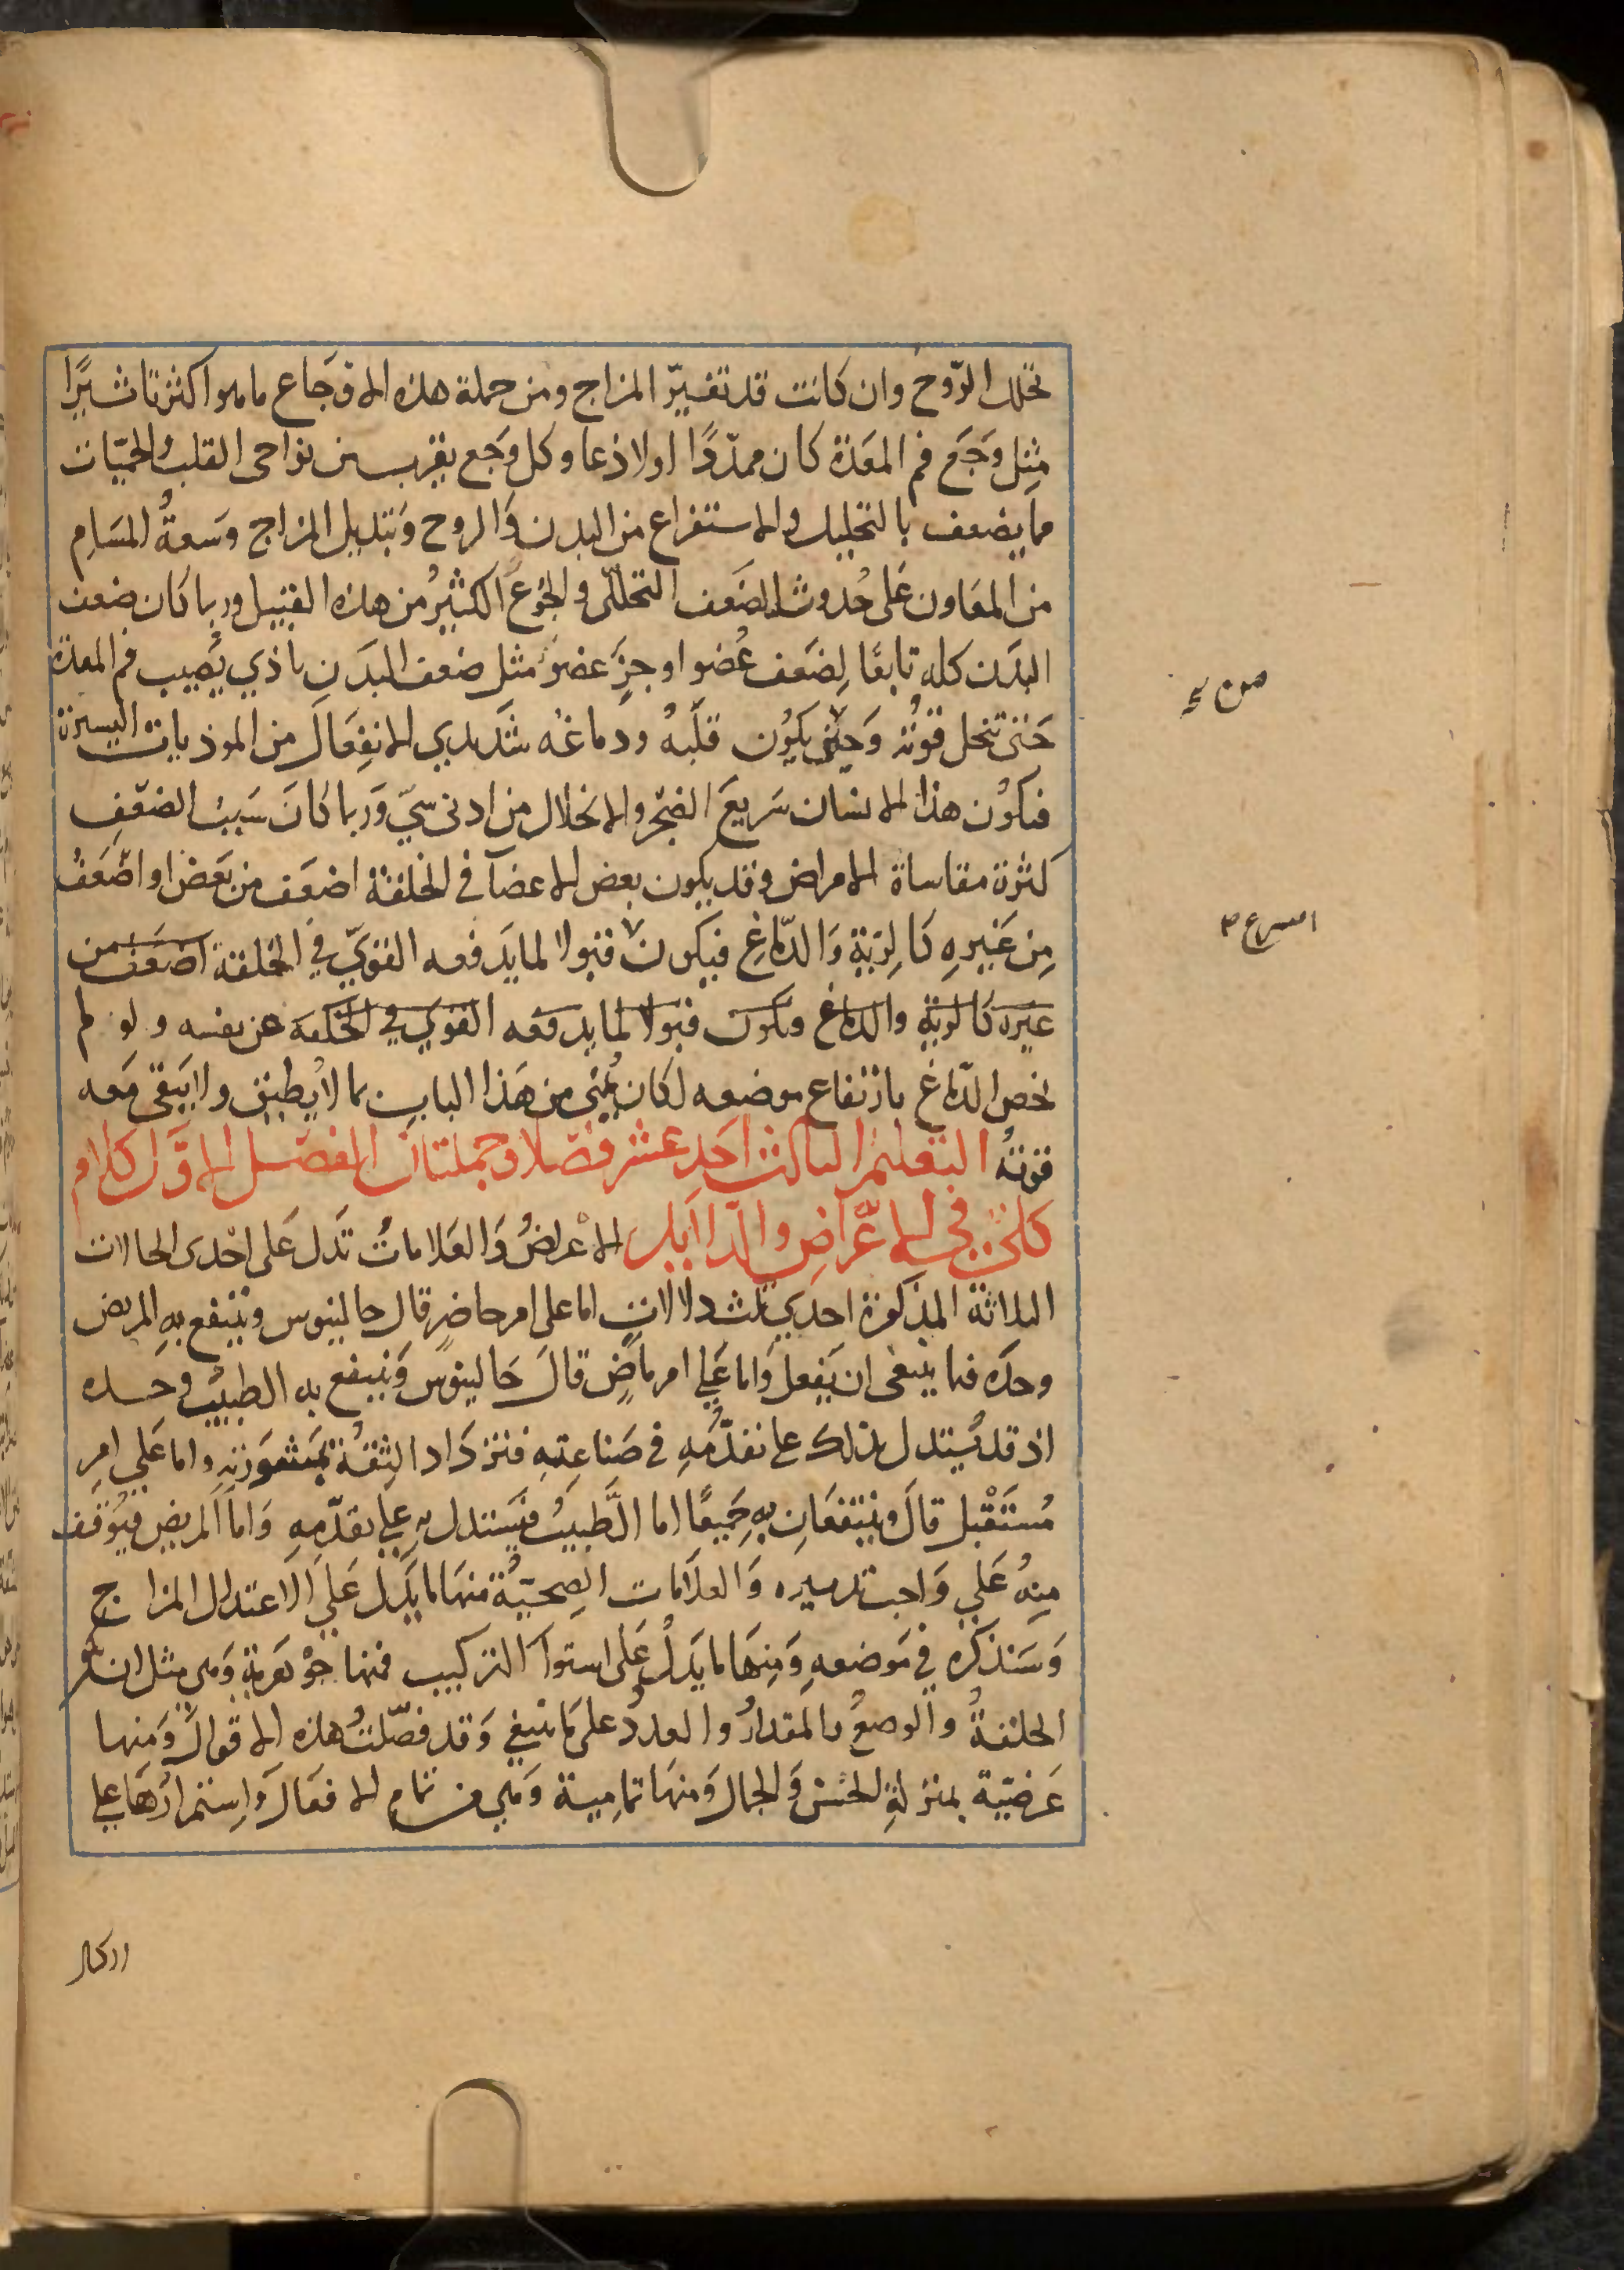 تحلل الروح وان كانت قد تغيّر المزاج ومن جملة هذه الاوجَاع ماهو اكثر تاثيرًا
مثِل وَجَع فم المعَدة كان ممدّدًا او لاذعا وكل وَجَع يقرب من نواحى القلب والحمّيات
مما يضعف بالتحليل والاستفراغ من البدن وَالروح وَتبديل المزاج وسَعةُ المسَام
من المعَاون عَلى حُدوث الضَعف التحللى والجُوع الكثيرُ من هذه القبيل وربما كان ضعف
البدَن كله تابعًا لِضَعف عُضو او جزِء عضوٍ مثل ضعف البدَن باذي يُصيب فم المعدة
حَتى تنحل قوتُه وَحتى يكوُن قلبُهُ ودماغُه شدَيدي الانفِعَال من الموذيات اليسيرة
فيكوُن هذا الانسان سَريعَ الضجر والانحلال من ادنى شيّ وَربما كانَ سَببُ الضعَفِ
كثرة مقاساة الامراض وقد يكون بعض الاعضآ فى الخلقة اضعَف من بَعَض او اضَعَفُ
مِن غَيرهِ كَالرئةِ وَالدّماغِ فيكون قبولا لما يدَفعه القَويّ في الخلقة اضعَف من
غيره كَالرئةِ والدماغ ويكون قبولا لما يدفعه القوي في الخلقة عن نفسه ولو لم
يخص الدّماغ بارتفاع موضعه لكان يُمنى من هَذا الباب بما لا يُطيق ولا يَبقى مَعه
قوته التعليم الثالث احَد عشر فصَلا وجملتان الفصَل الاوَّل كلام
كلى في الاعَراضِ والدّلايل الاعراضُ وَالعَلاماتُ تَدل عَلى احْدى الحالات
الثلاثة المذكورة احدَي ثلث دلالات اما على امر حاضرٍ قال جالينوس وينتفع بهِ المريض
وحدَه فيما ينبغى ان يَفعل وَاما عَلي امر ماضٍ قالَ جَالينوُس وَينتفع به الطبيبُ وحده
اذ قد يُستدل بذلك على تقدُّمهِ فى صَناعِتهِ فتزدَاد الثِقةُ بمَشوَرتهِ واما عَلي امرٍ
مُستَقبل قالَ وَينتفعَانِ بهِ جَميعًا اما الَّطبيبُ فيَستدل بهِ علي تقدّمهِ وَاما المريض فيَوُقف
مِنهُ عَلي وَاجب تدبيره وَالعلاَمات الصِحيّةُ منهَا ما يَدل عَلي الاعتدال المزاج
وَسَنذكره في مَوضعهِ وَمِنهَا ما يَدلُ عَلى استوآ التركيب فمنها جوهَريةٍ وَهى مثل ان يكون
الخلقةُ والوضعُ والمقدارُ والعددُ على مَا ينبغي وَقد فصّلتُ هذه الاقوالَ وَمنها
عَرضيّة بمنزلةِ الحسُن وَالجمالِ وَمنهَا تمامِيةَ وَهي من تمامِ الافعَالَ وَاِستمرارُهَا علي